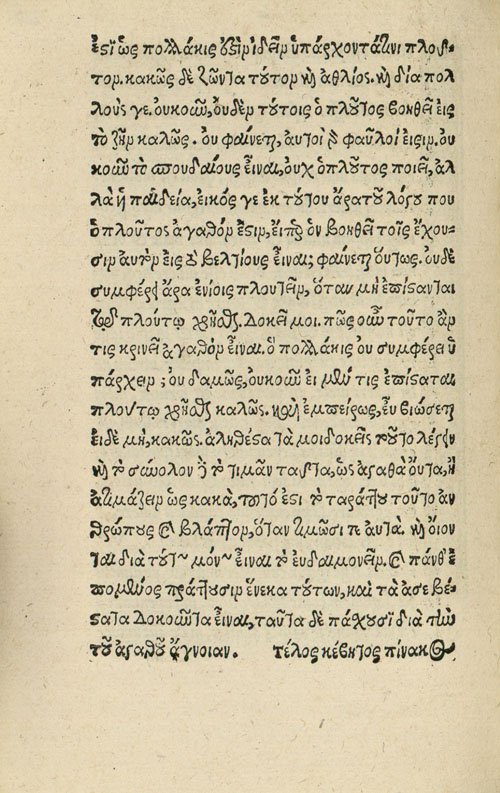 ἐστὶ ὡς πολλάκις ἐστὶν ἰδεῖν ὑπάρχοντά τινι πλοῦ-
τον. κακῶς δὲ ζῶντα τοῦτον καὶ ἀθλίως. καὶ διὰ πολ
λούς γε. οὐκοῦν, οὐδὲν τούτοις ὁ πλοῦτος βοηθεῖ εἰς
τὸ ζῆν καλῶς. οὐ φαίνεται, αὐτοὶ γὰρ φαῦλοί εἰσιν. οὐ
κοῦν τὸ σπουδαίους εἶναι, οὐχ ὁ πλοῦτος ποιεῖ, ἀλ
λὰ ἡ παιδεία, εἰκός γε ἐκ τούτου ἄρα τοῦ λόγου που
ὁ πλοῦτος ἀγαθόν ἐστιν, εἴπερ οὐ βοηθεῖ τοῖς ἔχου-
σιν αὐτὸν εἰς τὸ βελτίους εἶναι; φαίνεται οὕτως. οὐδὲ
συμφέρει ἄρα ἐνίοις πλουτεῖν, ὅταν μὴ ἐπίστανται
τῷ πλούτῳ χρῆσθαι. Δοκεῖ μοι. πῶς οὖν τοῦτο ἄν
τις κρίνει ἀγαθὸν εἶναι. ὃ πολλάκις οὐ συμφέρει ὑ
πάρχειν; οὐδαμῶς, οὐκοῦν εἰ μέν τις ἐπίσταται
πλούτῳ χρῆσθαι καλῶς. καὶ ἐμπείρως, εὖ βιώσεται
εἰ δὲ μή, κακῶς. ἀληθέστατά μοι δοκεῖς τοῦτο λέγειν
καὶ τὸ σύνολον δὲ τὸ τιμᾶν ταῦτα, ὡς ἀγαθὰ ὄντα, ἢ
ἀτιμάζειν ὡς κακὰ, τοῦτό ἐστι τὸ ταράττον τοὺς ἀν
θρώπους καὶ βλάπτον, ὅταν τιμῶσί τε αὐτὰ. καὶ οἴον
ται διὰ τούτων μόνων εἶναι τὸ εὐδαιμονεῖν. καὶ πάνθ' ἑ
πομένως πράττουσιν ἕνεκα τούτων, καὶ τὰ ἀσεβέ-
στατα δοκοῦντα εἶναι, ταῦτα δὲ πάσχουσι διὰ τὴν
τοῦ ἀγαθοῦ ἄγνοιαν. τέλος κέβητος πίνακος